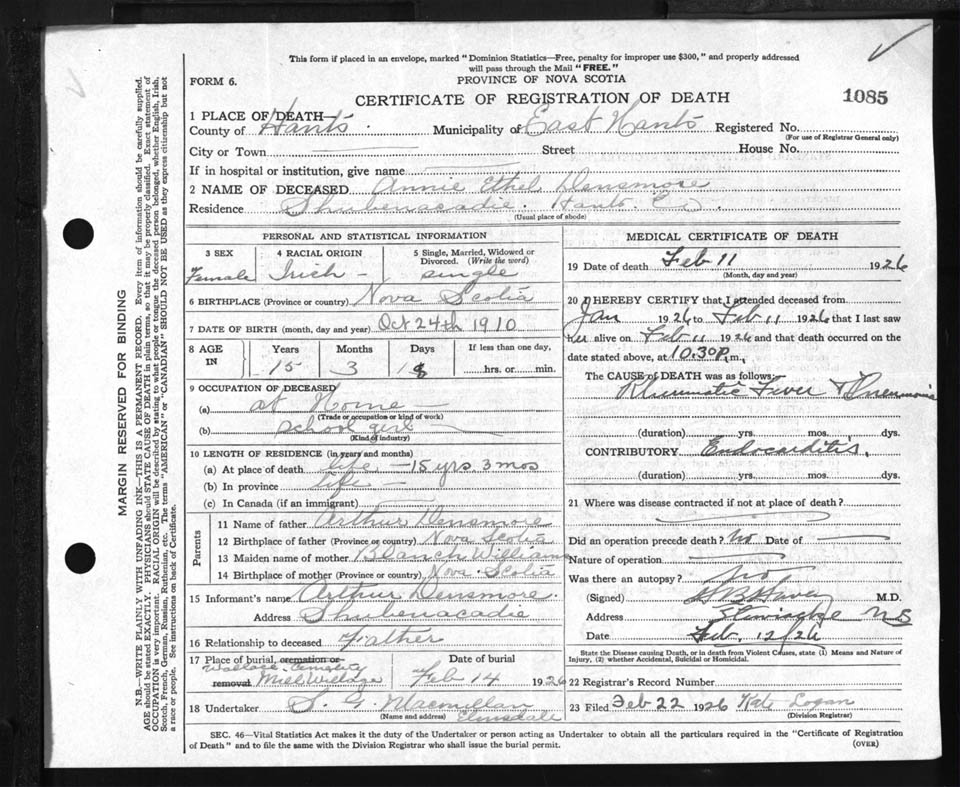 This form if placed in an envelope, marked "Dominion Statistics—Free, penalty for improper use $300," and properly addressed
will pass through the Mail "FREE."
FORM 6.
PROVINCE OF NOVA SCOTIA
CERTIFICATE OF REGISTRATION OF DEATH
1085
1 PLACE OF DEATH—
County of Hants. Municipality of East Hants Registered No.
(For use of Registrar General only)
City or Town Street House No.
If in hospital or institution, give name
2 NAME OF DECEASED Annie Ethel Densmore
Residence Shubenacadie. Hants. Co.
(Usual place of abode)
PERSONAL AND STATISTICAL INFORMATION
3 SEX 4 RACIAL ORIGIN 5 Single, Married, Widowed or
Divorced. (Write the word)
Female Irish - single
6 BIRTHPLACE (Province or country) Nova Scotia
7 DATE OF BIRTH (month, day and year) Oct 24th 1910
8 AGE IN Years Months Days If less than one day,
15 3 18 hrs. or min.
9 OCCUPATION OF DECEASED
(a) at Home
(Trade or occupation or kind of work)
(b) school girl
(Kind of industry)
10 LENGTH OF RESIDENCE (in years and months)
(a) At place of death life - 15 yrs 3 mos
(b) In province life -
(c) In Canada (if an immigrant)
Parents
11 Name of father Arthur Densmore
12 Birthplace of father (Province or country) Nova Scotia
13 Maiden name of mother Blanch Williams
14 Birthplace of mother (Province or country) Nova Scotia
15 Informant's name Arthur Densmore.
Address Shubenacadie
16 Relationship to deceased Father
17 Place of burial, cremation or Date of burial
Wallace Cemetery
removal Mill Village Feb 14 1926
18 Undertaker S. G. Macmillan
(Name and address) Elmsdale
MEDICAL CERTIFICATE OF DEATH
19 Date of death Feb 11 1926
(Month, day and year)
20 I HEREBY CERTIFY that I attended deceased from
Jan 1926 to Feb 11 1926 that I last saw
her alive on Feb 11 1926 and that death occurred on the
date stated above, at 10.30 p.m.
The CAUSE of DEATH was as follows:
Rheumatic Fever & Pneumonia
(duration) yrs. mos. dys.
CONTRIBUTORY Endocarditis,
(duration) yrs. mos. dys.
21 Where was disease contracted if not at place of death?
Did an operation precede death? No Date of
Nature of operation
Was there an autopsy? No
(Signed) M.D.
Address Stewiacke NS
Date Feb. 12/26
State the Disease causing Death, or in death from Violent Causes, state (1) Means and Nature of
Injury, (2) whether Accidental, Suicidal or Homicidal.
22 Registrar's Record Number
23 Filed Feb 22 1926 Kate Logan
(Division Registrar)
SEC. 46—Vital Statistics Act makes it the duty of the Undertaker or person acting as Undertaker to obtain all the particulars required in the "Certificate of Registration
of Death" and to file the same with the Division Registrar who shall issue the burial permit.
(OVER)
MARGIN RESERVED FOR BINDING
N.B.—WRITE PLAINLY WITH UNFADING INK—THIS IS A PERMANENT RECORD. Every item of information should be carefully supplied.
AGE should be stated EXACTLY. PHYSICIANS should STATE CAUSE OF DEATH in plain terms, so that it may be properly classified. Exact statement of
OCCUPATION is very important. RACIAL ORIGIN will be described by stating to what people or tongue the deceased person belonged, whether English, Irish,
Scotch, French, German, Russian, Ruthenian, etc. The terms "AMERICAN" or "CANADIAN" SHOULD NOT BE USED as they express citizenship but not
a race or people. See instructions on back of Certificate.